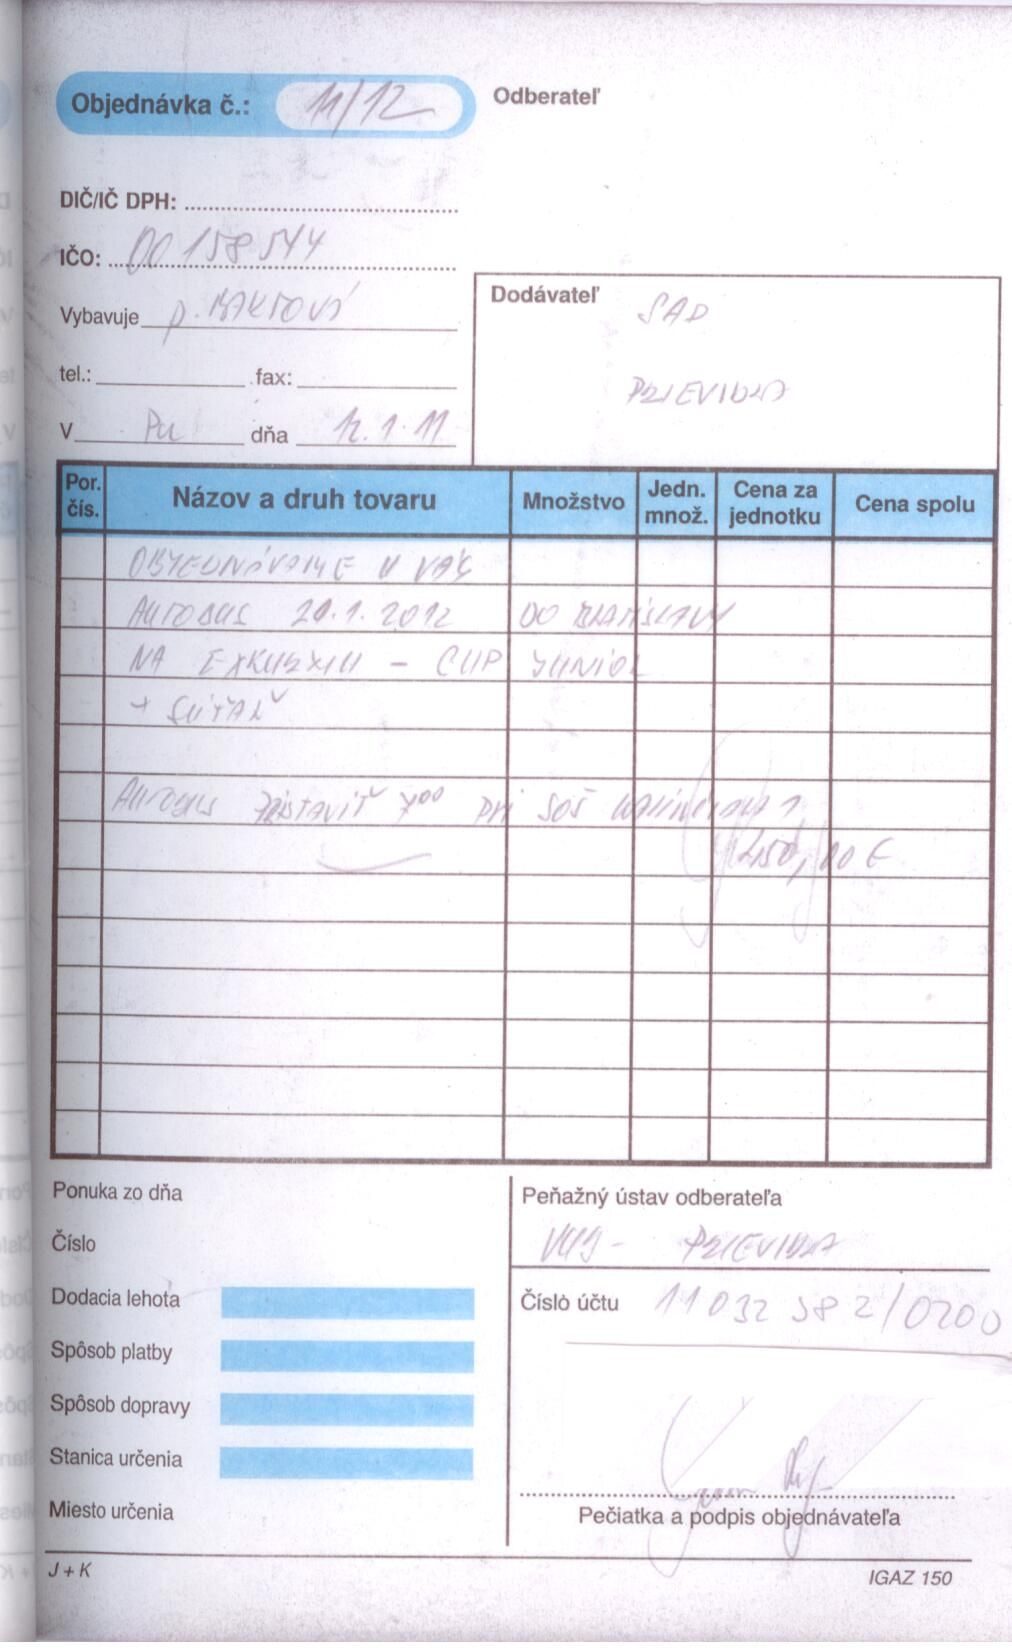 Objednávka č.: 11/12
Odberateľ
DIČ/IČ DPH:
IČO: 00158544
Vybavuje p.
tel.: fax:
V Pu dňa 12.1.11
Dodávateľ SAD
PRIEVIDZA
Por. čís. Názov a druh tovaru Množstvo Jedn. množ. Cena za jednotku Cena spolu
OBJEDNÁVAME U VÁS
AUTOBUS 20.1.2012 DO BRATISLAVY
NA EXKURZIU - CUP JUNIOR
+ SÚŤAŽ
AUTOBUS PRISTAVIŤ 700 PRI SOŠ
450,00 €
Ponuka zo dňa
Číslo
Dodacia lehota
Spôsob platby
Spôsob dopravy
Stanica určenia
Miesto určenia
Peňažný ústav odberateľa
PRIEVIDZA
Číslo účtu 11032382/0200
Pečiatka a podpis objednávateľa
J + K
IGAZ 150